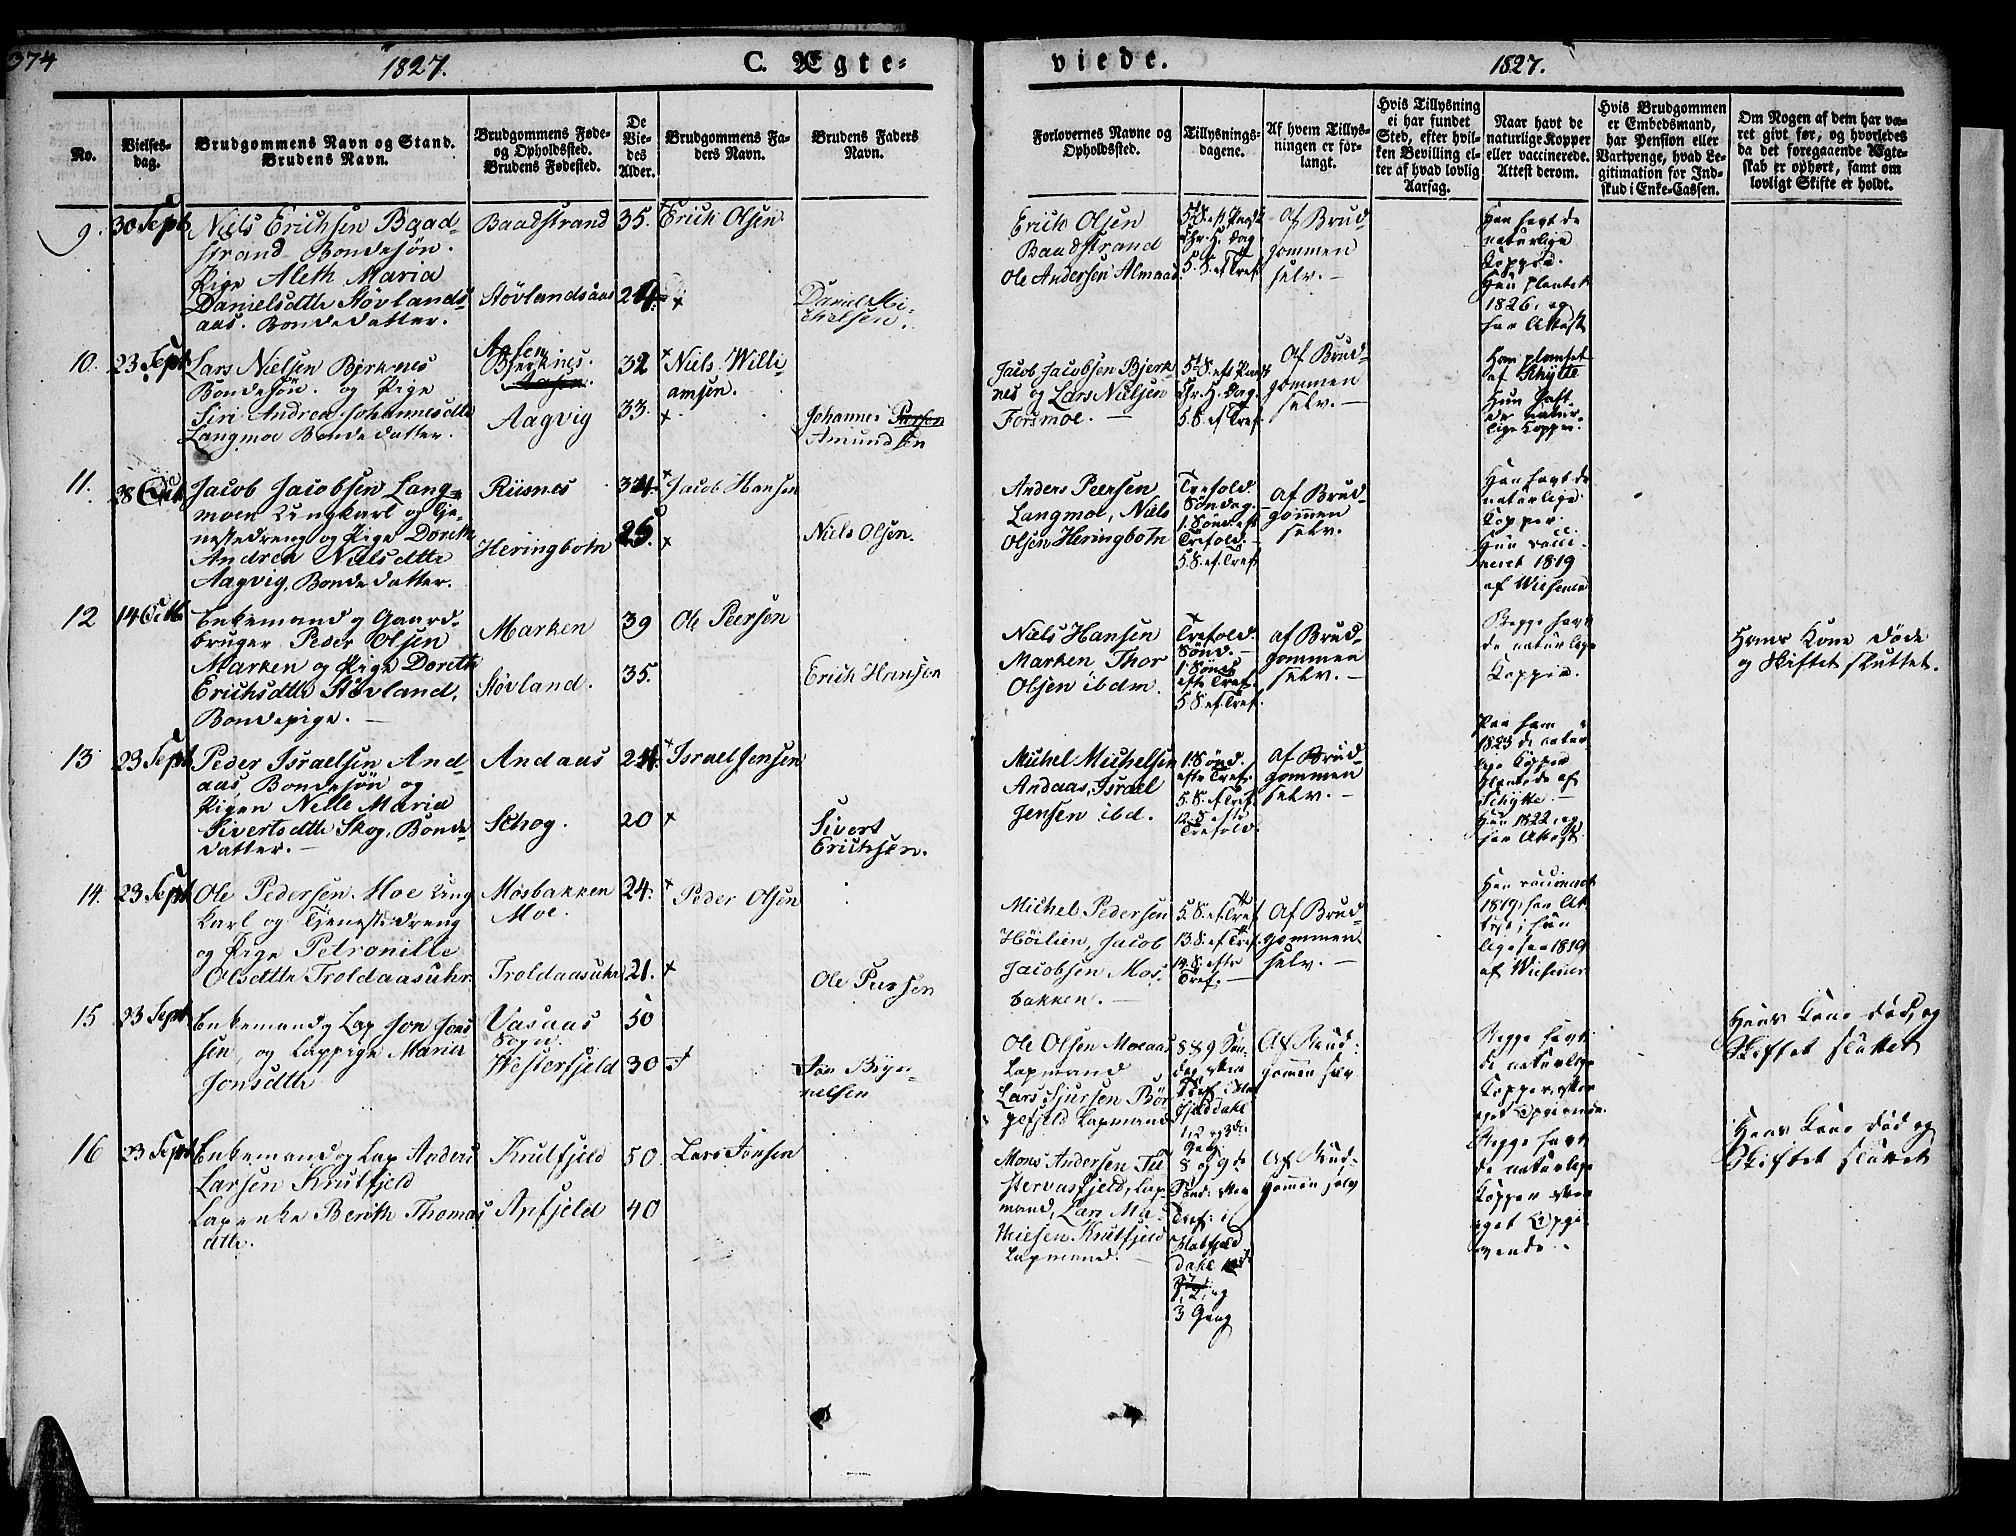 374
1827.
C. Ægte-
viede.
1827.
No.
Vielses-
dag.
Brudgommens Navn og Stand.
Brudens Navn.
Brudgommens Føde-
og Opholdssted.
Brudens Fødested.
De
Vie-
des
Alder.
Brudgommens Fa-
ders Navn.
Brudens Faders
Navn.
Forlovernes Navne og
Opholdssted.
Tillysnings-
dagene.
Af hvem Tillys-
ningen er for-
langt.
Hvis Tillysning
ei har fundet
Sted, efter hvil-
ken Bevilling el-
ler af hvad lovlig
Aarsag.
Naar havt de
naturlige Kopper
eller vaccinerede.
Attest derom.
Hvis Brudgommen
er Embedsmand,
har Pension eller
Vartpenge, hvad Le-
gitimation for Ind-
skud i Enke-Cassen.
Om Nogen af dem har væ-
ret givt før, og hvorledes
da det foregaaende Ægte-
skab er ophørt, samt om
lovligt Skifte er holdt.
9. 30 Sept
Niels Erichsen Baad-
strand Bondesøn.
Pige Aleth Maria
Danielsdttr Støvlands-
aas. Bondedatter.
Baadstrand
Støvlandsaas
35.
24
Erich Olsen
Daniel Mi-
chelsen.
Erich Olsen
Baadstrand
Ole Andersen Almaas
5 S. eft Pask
Chr. H. Dag
5. S. ef Tref
Af Brud-
gommen
selv. -
Han havt de
naturlige
Kopper.
Hun plantet
1826, og
har Attest
10. 23 Sept
Lars Nielsen Bjerknes
Bondesøn. og Pige
Siri Andrea Johannesdttr
Langmoe Bondedatter.
Bjerknes.
Aagvig
32
33.
Niels Willi-
amsen.
Johannes Persen
Amundsen
Jacob Jacobsen Bjerk-
nes og Lars Nielsen
Forsmoe. -
5 S. eft Pask
Chr. H. Dag.
5. S. ef Tref.
Af Brud-
gommen
selv. -
Han plantet
af Schytte
Hun haft
de natur-
lige Kopper.
11. 28 Oct
Jacob Jacobsen Lang-
moen Ungkarl og Tje-
nestedreng og Pige Doreth
Andrea Nielsdttr
Aagvig, Bondedatter.
Riisnes
Heringbotn
34
26
Jacob Hansen
Niels Olsen.
Anders Peersen
Langmoe, Niels
Olsen Heringbotn
Trefold.
Søndag.
1. Sønd. eft
Trefold. -
5. S. ef. Tref
Af Brud-
gommen
selv.
Han havt de
naturlige
Kopper.
Hun vacci-
neret 1819
af Wisener
12 14 Octb
Enkemand og Gaard-
bruger Peder Olsen
Marken og Pige Doreth
Erichsdttr Støvland.
Bondepige. -
Marken
Støvland.
39
35.
Ole Peersen
Erich Hansen
Niels Hansen
Marken Thor
Olsen ibdm.
Trefold.
Sønd. -
1. Sønd
efter Tref.
5. S. ef. Tref.
af Brud-
gommen
selv. -
Begge havt
de naturlige
Kopper.
Hans Kone døde
og Skiftet sluttet.
13 23 Sept
Peder Israelsen And-
aas, Bondesøn og
Pigen Nelle Maria
Sivertsdttr Skog, Bonde-
datter. -
Andaas
Schog.
24
20
Israel Jensen
Sivert
Erichsen.
Michel Michelsen
Andaas, Israel
Jensen ibd.
1. Sønd.
efte Tref.
5. S. ef Tref.
12. S. efte
Trefold.
Af Brud-
gommen
selv. -
Paa ham
1823 de natur-
lige Kopper
plantede af
Schytte. -
Hun 1822, og
har Attest.
14. 23 Sept
Ole Pedersen Moe Ung-
karl og Tjenestedreng
og Pige Petronille
Olsdttr Troldaasuhr.
Mosbakken
Moe.
Troldaasuhr
24.
21.
Peder Olsen
Ole Peersen
Michel Pedersen
Høilien, Jacob
Jacobsen Mos-
bakken. -
5. S. ef Tref
13. S. ef Tref.
14. S. efte
Tref. -
Af Brud-
gommen
selv. -
Han vaccineret
1819, har At-
test; hun
ligesaa 1819
af Wisener
15 23 Sept
Enkemand og Lap Jon Jons
sen, og Lappige Maria
Jonsdttr
Vasaas
Sogn.
Westerfjeld
50
30
Jon Bryn-
nelsen
Ole Olsen Moeaas
Lapmand
Lars Sjursen Bør
gefjeld Lapmand
8 & 9 Søn-
dag efter
Tref. i Hat
fjelddahl
1, 2 og 3die
Gang
Af Brud-
gomen selv
Begge havt
de naturlige
Kopper, efter
eget Opgivende.
Hans Kone død, og
Skiftet sluttet
16 23 Sept
Enkemand og Lap Anders
Larsen Krutfjeld
Lapenke Berith Thomas
dttr.
Krutfjeld
Arefjeld
50
40
Lars Jonsen
Mons Andersen Tii
stervasfjeld, Lap-
mand, Lars Ma-
thiesen Krutfjeld
Lapmand. -
8 og 9de
Sønd: efter
Tref: i
Hatfjeld
dahl
1, 2, og
3 Gang
Af Brud-
gomen selv
Begge havt
de naturlige
Kopper efter
eget Opgi-
vende. -
Hans Kone død og
Skiftet sluttet